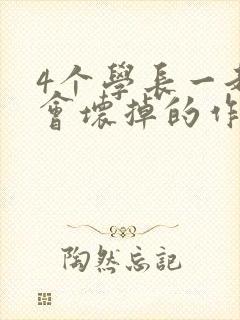 4个學長一
會壞掉的作
陶然忘記